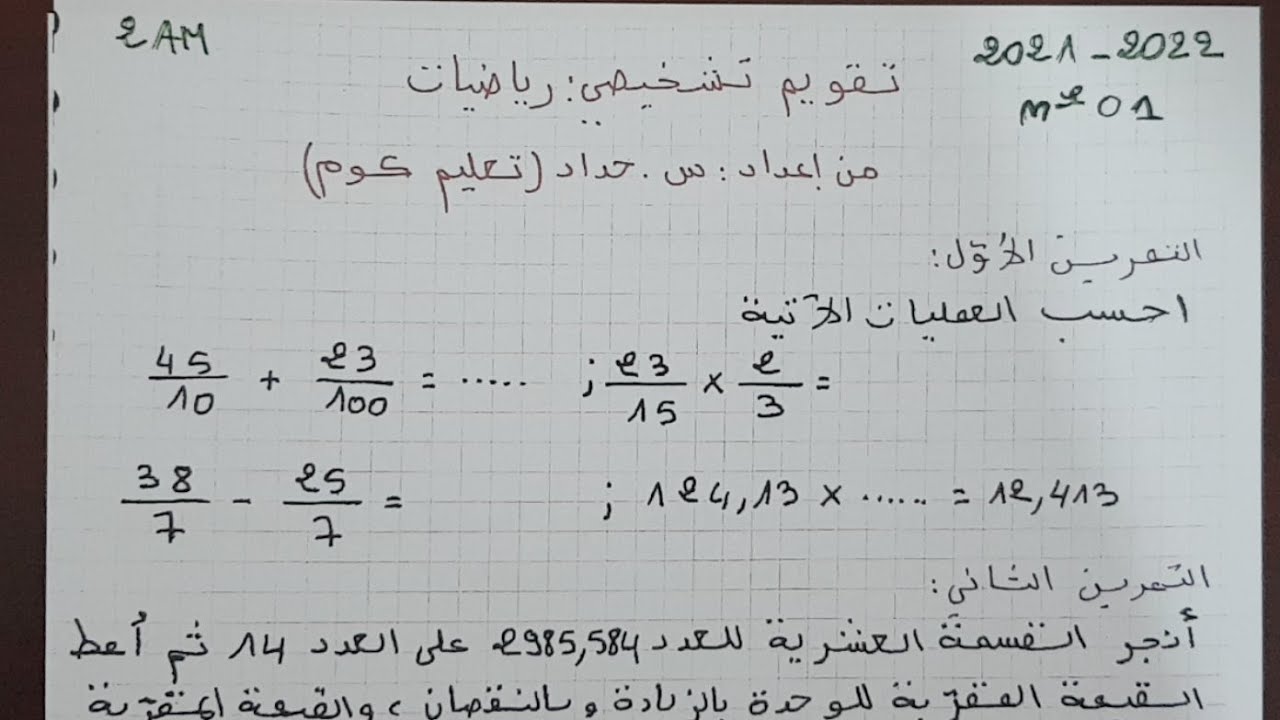 2AM
2021-2022
تقويم تشخيصي: رياضيات
n° 01
من إعداد: س. حداد (تعليم كوم)
التمرين الأوّل:
احسب العمليات الآتية
45/10 + 23/100 = ..... ; 23/15 × 2/3 =
38/7 - 25/7 = ; 124,13 × ...... = 12,413
التمرين الثاني:
أنجر القسمة العشرية للعدد 2985,584 على العدد 14 ثم أعط
القيمة المقرّبة للوحدة بالزيادة وبالنقصان، والقيمة المقرّبة